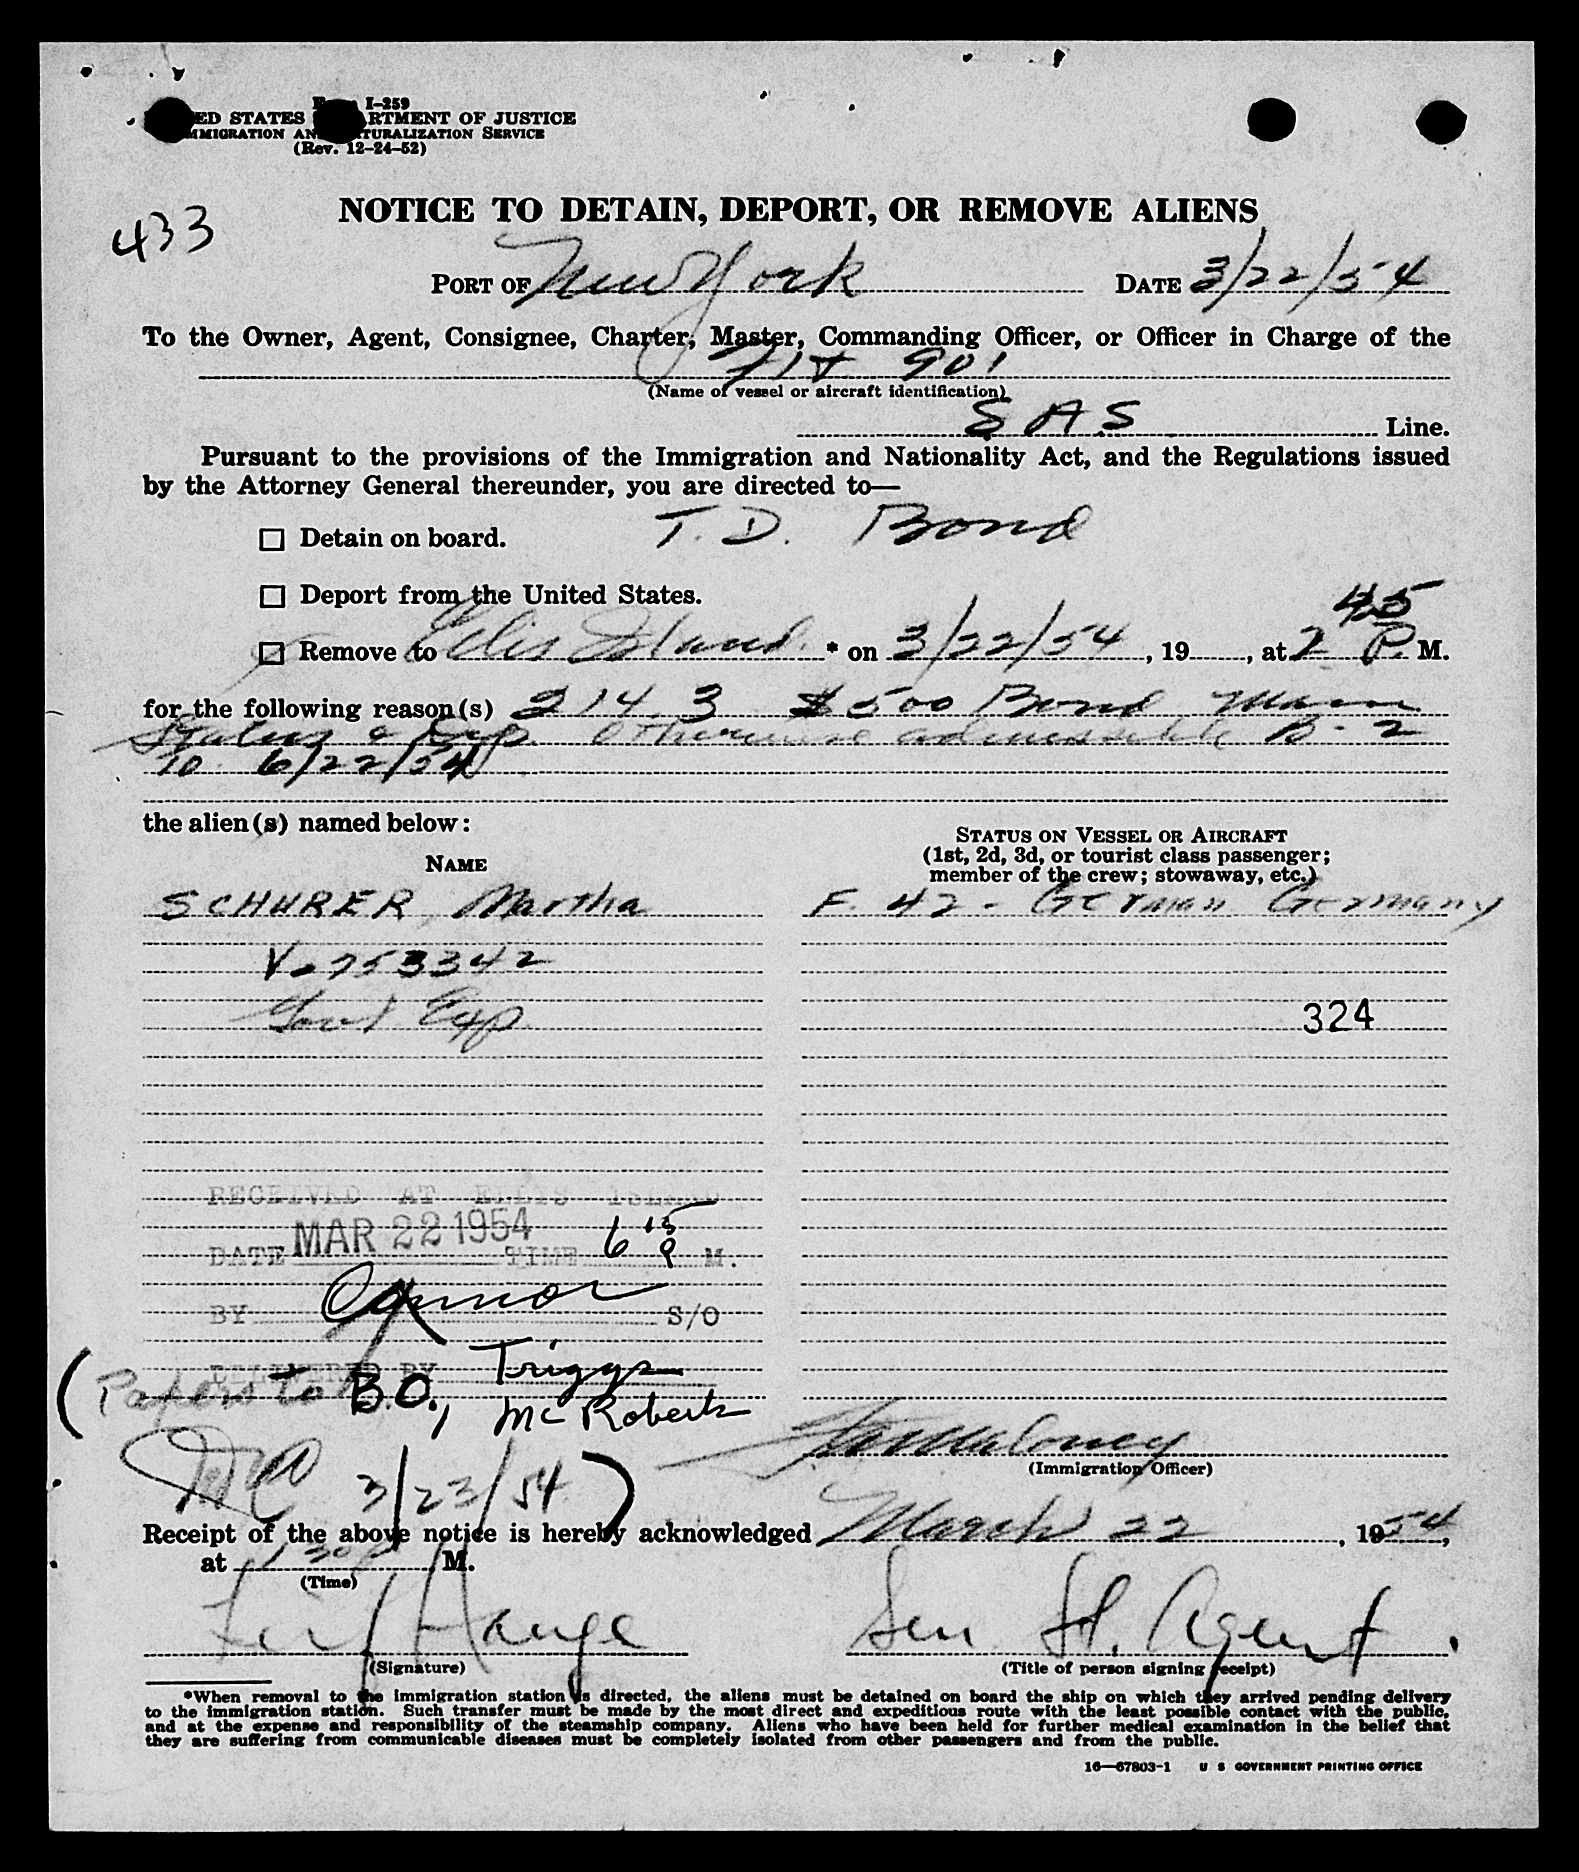 I-259
ED STATES RTMENT OF JUSTICE
MMIGRATION AN TURALIZATION SERVICE
(Rev. 12-24-52)
433
NOTICE TO DETAIN, DEPORT, OR REMOVE ALIENS
PORT OF New York DATE 3/22/54
To the Owner, Agent, Consignee, Charter, Master, Commanding Officer, or Officer in Charge of the
Flt 901
(Name of vessel or aircraft identification)
SAS Line.
Pursuant to the provisions of the Immigration and Nationality Act, and the Regulations issued
by the Attorney General thereunder, you are directed to—
☐ Detain on board. T. D. Bond
☐ Deport from the United States.
☐ Remove to Ellis Island * on 3/22/54, 19, at 2 45 P. M.
for the following reason(s) 214.3 $500 Bond Main
Status & Dep. Otherwise admissible B-2
To 6/22/54
the alien(s) named below:
NAME
STATUS ON VESSEL OR AIRCRAFT
(1st, 2d, 3d, or tourist class passenger;
member of the crew; stowaway, etc.)
SCHURER, Martha F. 42 - German Germany
V-753342
Govt Exp
324
RECEIVED AT ELLIS ISLAND
DATE MAR 22 1954 TIME 6 15 P M.
BY Connor S/O
DELIVERED BY Triggs
(Papers to B.O., McRoberts
3/23/54)
Maloney
(Immigration Officer)
Receipt of the above notice is hereby acknowledged March 22, 1954,
at M.
(Time)
Hauge Sen St. Agent.
(Signature) (Title of person signing receipt)
*When removal to the immigration station is directed, the aliens must be detained on board the ship on which they arrived pending delivery
to the immigration station. Such transfer must be made by the most direct and expeditious route with the least possible contact with the public,
and at the expense and responsibility of the steamship company. Aliens who have been held for further medical examination in the belief that
they are suffering from communicable diseases must be completely isolated from other passengers and from the public.
16—67803-1 U S GOVERNMENT PRINTING OFFICE